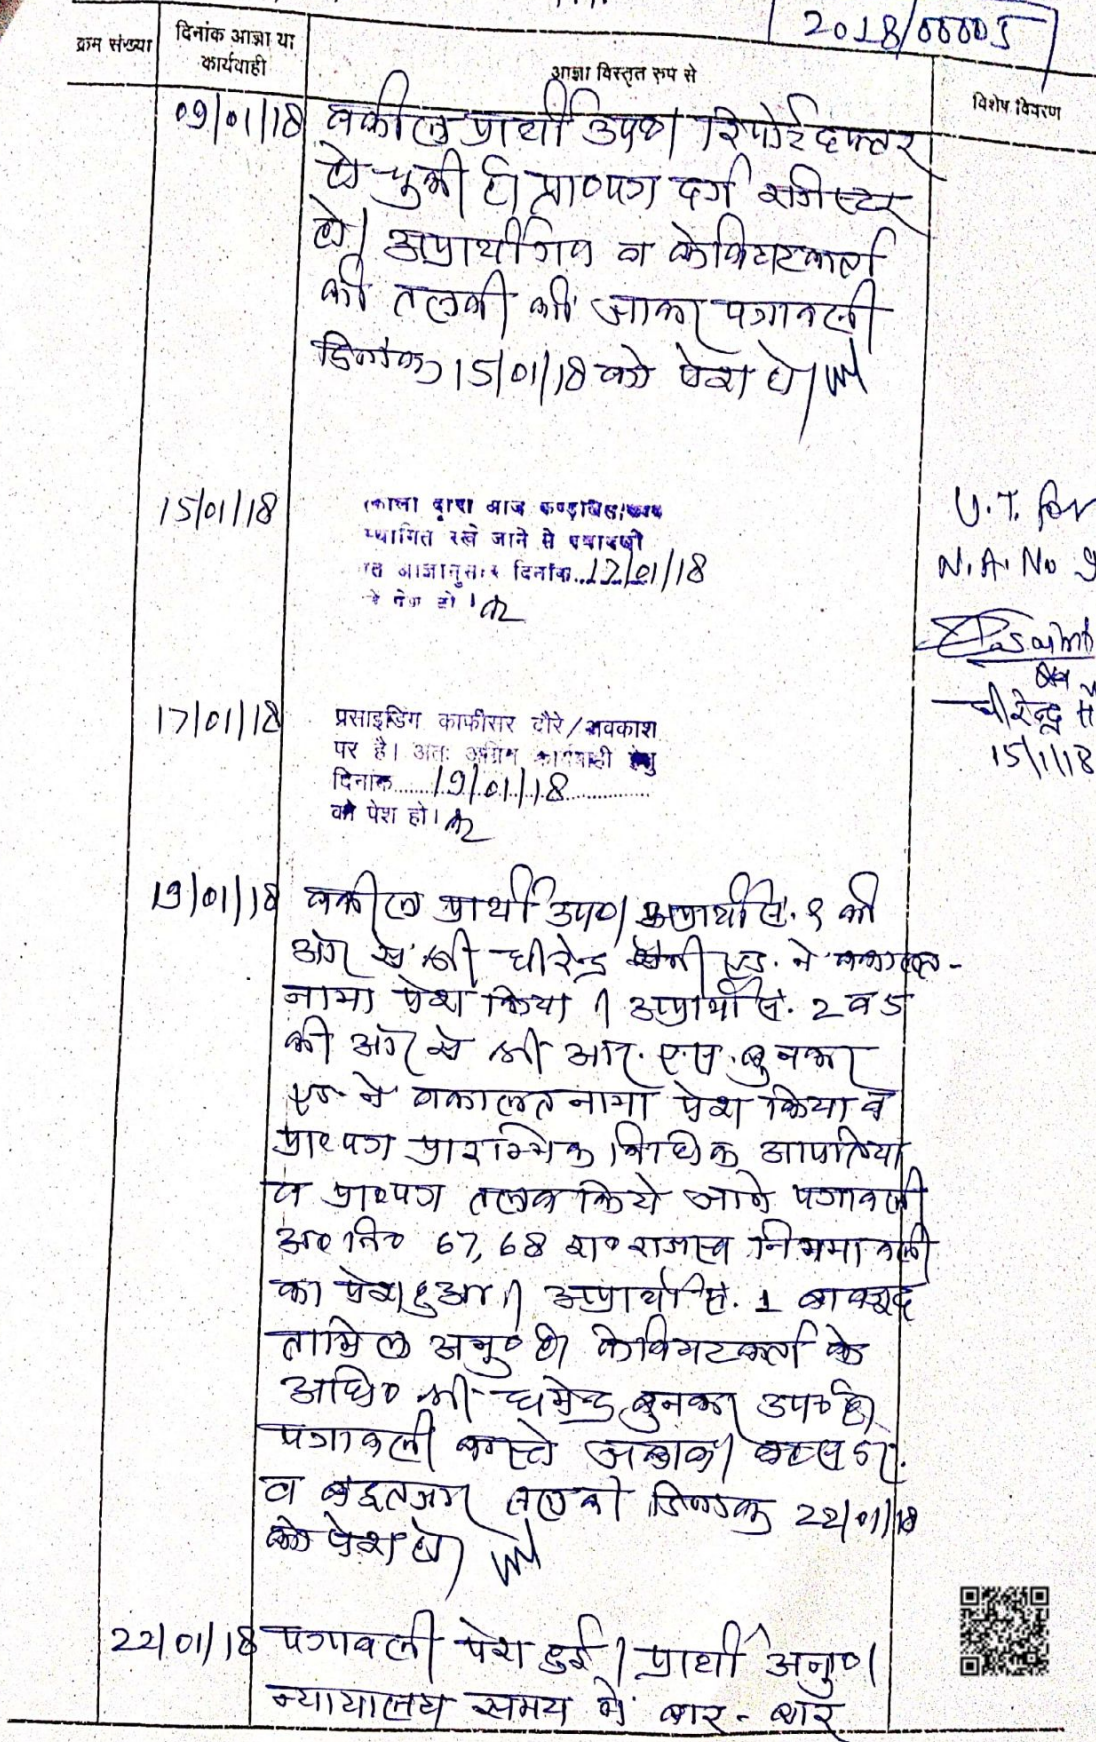 2018/00005
क्रम संख्या
दिनांक आज्ञा या
कार्यवाही
आज्ञा विस्तृत रुप से
विशेष विवरण
09/01/18 वकील प्रार्थी उप०। रिपोर्ट दफ्तर
हो चुकी है। प्रा०पत्र दर्ज रजिस्टर
हो। अप्रार्थीगण व केवियटकर्ता
की तलबी की जाकर पत्रावली
दिनांक 15/01/18 को पेश हो।
15/01/18
द्वारा आज कण्डोलेंस/कार्य
स्थगित रखे जाने से पत्रावली
आज्ञानुसार दिनांक 17/01/18
पेश हो।
U.T. for
N.A. No 9
धीरेन्द्र सै
15/1/18
17/01/18 प्रसाइडिंग ऑफीसर दौरे/अवकाश
पर है। अतः अग्रिम कार्यवाही हेतु
दिनांक 19/01/18
को पेश हो।
19/01/18 वकील प्रार्थी उप०। अप्रार्थी सं. 9 की
ओर से श्री धीरेन्द्र सैनी एड. ने वकालत-
नामा पेश किया। अप्रार्थी सं. 2 व 5
की ओर से श्री आर. एस. बुनकर
एड. ने वकालत नामा पेश किया व
प्रा०पत्र प्रारम्भिक विधिक आपत्तिया
व प्रा०पत्र तलब किये जाने पत्रावली
अ० नि० 67, 68 रा० राजस्व नियमावली
का पेश हुआ। अप्रार्थी सं. 1 बावजूद
तामिल अनु० है। केवियटकर्ता के
अधि० श्री धर्मेन्द्र बुनकर उप० है।
पत्रावली वास्ते जवाब
व तलबी दिनांक 22/01/18
को पेश हो।
22/01/18 पत्रावली पेश हुई। प्रार्थी अनु०।
न्यायालय समय में बार-बार